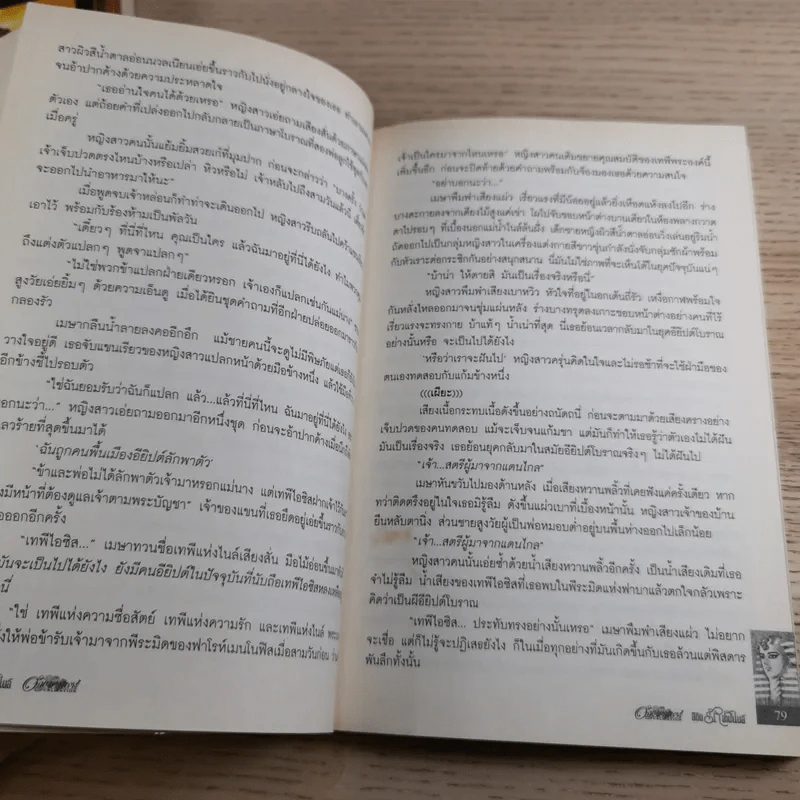 สาวผิวสีน้ำตาลอ่อนนวลเนียนเอ่ยขึ้นราวกับไปนั่งอยู่กลางใจของเธอ
จนอ้าปากค้างด้วยความประหลาดใจ
"เธออ่านใจคนได้ด้วยเหรอ" หญิงสาวเอ่ยถามเสียงสั่นด้วยภาษา
ตัวเอง แต่ถ้อยคำที่เปล่งออกไปกลับกลายเป็นภาษาโบราณที่สองพ่อลูกใช้
เมื่อครู่
หญิงสาวคนนั้นแย้มยิ้มสวยเก๋ที่มุมปาก ก่อนจะกล่าวว่า
เจ้าเจ็บปวดตรงไหนบ้างหรือเปล่า หิวหรือไม่ เจ้าหลับไปถึงสามวันแล้ว
จะออกไปนำอาหารมาให้นะ"
เมื่อพูดจบเจ้าหล่อนก็ทำท่าจะเดินออกไป หญิงสาวรีบถลันไป
เอาไว้ พร้อมกับร้องห้ามเป็นพัลวัน
"เดี๋ยวๆ ที่นี่ที่ไหน คุณเป็นใคร แล้วฉันมาอยู่ที่นี่ได้ยังไง ทำไม
ถึงแต่งตัวแปลกๆ พูดจาแปลกๆ"
"ไม่ใช่พวกข้าแปลกฝ่ายเดียวหรอก เจ้าเองก็แปลกเช่นกันแม่นาง"
สูงวัยเอ่ยยิ้มๆ ด้วยความเอ็นดู เมื่อได้ยินชุดคำถามที่อีกฝ่ายปล่อยออกมา
กลองรัว
เมษากลืนน้ำลายลงคออีกอึก แม้ชายคนนี้จะดูไม่มีพิษภัยแต่เธอ
วางใจอยู่ดี เธอจับแขนเรียวของหญิงสาวแปลกหน้าด้วยมือข้างหนึ่ง แล้วใช้มือ
อีกข้างชี้ไปรอบตัว
"ใช่ฉันยอมรับว่าฉันก็แปลก แล้ว...แล้วที่นี่ที่ไหน ฉันมาอยู่ที่นี่ได้ยังไง
อกนะว่า..." หญิงสาวเอ่ยถามออกมาอีกหนึ่งชุด ก่อนจะอ้าปากค้างเมื่อ
ลวร้ายที่สุดขึ้นมาได้
'ฉันถูกคนพื้นเมืองอียิปต์ลักพาตัว'
"ข้าและพ่อไม่ได้ลักพาตัวเจ้ามาหรอกแม่นาง แต่เทพีไอซิสฝากเจ้าไว้
งมีหน้าที่ต้องดูแลเจ้าตามพระบัญชา" เจ้าของแขนที่เธอยึดอยู่เอ่ยขึ้น
ออกอีกครั้ง
"เทพีไอซิส..." เมษาทวนชื่อเทพีแห่งไนล์เสียงสั่น มือไม้อ่อนขึ้นมา
มันจะเป็นไปได้ยังไง ยังมีคนอียิปต์ในปัจจุบันที่นับถือเทพีไอซิส
นี่
"ใช่ เทพีแห่งความซื่อสัตย์ เทพีแห่งความรัก และเทพีแห่งไนล์
งให้พ่อข้ารับเจ้ามาจากพีระมิดของฟาโรห์เมนโนฟิสเมื่อสามวันก่อน
เจ้าเป็นใครมาจากไหนเหรอ" หญิงสาวคนเดิมขยายคุณสมบัติของเทพีพระองค์นี้
เพิ่มขึ้นอีก ก่อนจะปิดท้ายด้วยคำถามพร้อมกับจ้องมองเธอด้วยความสนใจ
"อย่าบอกนะว่า..."
เมษาพึมพำเสียงแผ่ว เรี่ยวแรงที่มีน้อยอยู่แล้วยิ่งเหือดแห้งลงไปอีก ร่าง
บางตะกายลงจากเตียงไม้สูงแค่เข่า โผไปจับขอบหน้าต่างบานเดียวในห้องพลางกวาด
ตาไปรอบๆ ที่เบื้องนอกแม่น้ำไนล์ล้นฝั่ง เด็กชายหญิงผิวสีน้ำตาลอ่อนวิ่งเล่นอยู่ริมน้ำ
ถัดออกไปเป็นกลุ่มหญิงสาวในเครื่องแต่งกายสีขาวขุ่นกำลังนั่งจับกลุ่มซักผ้าพร้อม
กับหัวเราะต่อกระซิกกันอย่างสนุกสนาน นี่มันไม่ใช่ภาพที่จะเห็นได้ในยุคปัจจุบันแน่ๆ
"บ้าน่า ให้ตายสิ มันเป็นเรื่องจริงหรือนี่"
หญิงสาวพึมพำเสียงเบาหวิว หัวใจที่อยู่ในอกเต้นถี่รัว เหงื่อกาฬพร้อมใจ
กันหลั่งไหลออกมาจนชุ่มแผ่นหลัง ร่างบางทรุดลงเกาะขอบหน้าต่างอย่างคนที่ไร้
เรี่ยวแรงจะทรงกาย บ้าแท้ๆ น้ำเน่าที่สุด นี่เธอย้อนเวลากลับมาในยุคอียิปต์โบราณ
อย่างนั้นหรือ จะเป็นไปได้ยังไง
'หรือว่าเราจะฝันไป' หญิงสาวครุ่นคิดในใจและไม่รอช้าที่จะใช้ฝ่ามือของ
ตนเองทดสอบกับแก้มข้างหนึ่ง
(((เผียะ)))
เสียงเนื้อกระทบเนื้อดังขึ้นอย่างถนัดถนี่ ก่อนจะตามมาด้วยเสียงครางอย่าง
เจ็บปวดของคนทดสอบ แม้จะเจ็บจนแก้มชา แต่มันก็ทำให้เธอรู้ว่าตัวเองไม่ได้ฝัน
มันเป็นเรื่องจริง เธอย้อนยุคกลับมาในสมัยอียิปต์โบราณจริงๆ ไม่ได้ฝันไป
"เจ้า...สตรีผู้มาจากแดนไกล"
เมษาหันขวับไปมองด้านหลัง เมื่อเสียงหวานพลิ้วที่เคยฟังแค่ครั้งเดียว หาก
ทว่าติดตรึงอยู่ในใจเธอมิรู้ลืม ดังขึ้นแผ่วเบาที่เบื้องหน้านั้น หญิงสาวเจ้าของบ้าน
ยืนหลับตานิ่ง ส่วนชายสูงวัยผู้เป็นพ่อหมอบต่ำอยู่บนพื้นห่างออกไปเล็กน้อย
"เจ้า...สตรีผู้มาจากแดนไกล"
หญิงสาวคนนั้นเอ่ยซ้ำด้วยน้ำเสียงหวานพลิ้วอีกครั้ง เป็นน้ำเสียงเดิมที่เธอ
จำไม่รู้ลืม น้ำเสียงของเทพีไอซิสที่เธอพบในพีระมิดแห่งฟาบาแล้วตกใจกลัวเพราะ
คิดว่าเป็นผีอียิปต์โบราณ
"เทพีไอซิส... ประทับทรงอย่างนั้นเหรอ" เมษาพึมพำเสียงแผ่ว ไม่อยาก
จะเชื่อ แต่ก็ไม่รู้จะปฏิเสธยังไง ก็ในเมื่อทุกอย่างที่มันเกิดขึ้นกับเธอล้วนแต่พิสดาร
พันลึกทั้งนั้น
79